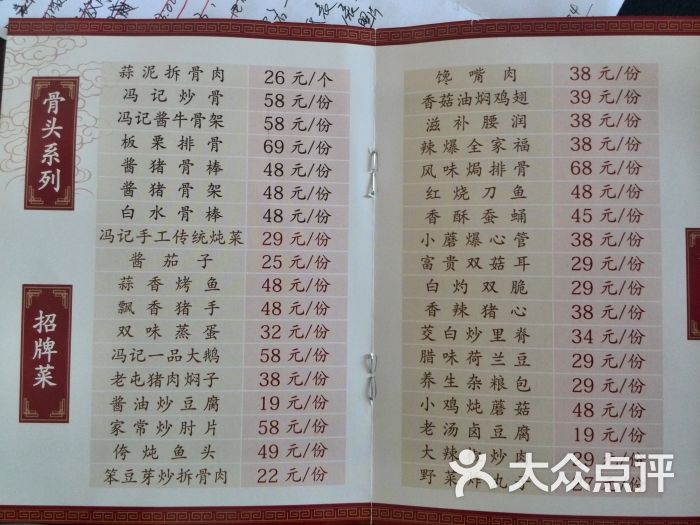 骨头系列
蒜泥拆骨肉 26 元/个
冯记炒骨 58 元/份
冯记酱牛骨架 58 元/份
板栗排骨 69 元/份
酱猪骨棒 48 元/份
酱猪骨架 48 元/份
白水骨棒 48 元/份
招牌菜
冯记手工传统炖菜 29 元/份
酱茄子 25 元/份
蒜香烤鱼 48 元/份
飘香猪手 48 元/份
双味蒸蛋 32 元/份
冯记一品大鹅 58 元/份
老屯猪肉焖子 38 元/份
酱油炒豆腐 19 元/份
家常炒肘片 58 元/份
侉炖鱼头 49 元/份
笨豆芽炒拆骨肉 22 元/份
馋嘴肉 38 元/份
香菇油焖鸡翅 39 元/份
滋补腰润 38 元/份
辣爆全家福 38 元/份
风味焗排骨 68 元/份
红烧刀鱼 48 元/份
香酥蚕蛹 45 元/份
小蘑爆心管 38 元/份
富贵双菇耳 29 元/份
白灼双脆 29 元/份
香辣猪心 38 元/份
茭白炒里脊 34 元/份
腊味荷兰豆 29 元/份
养生杂粮包 29 元/份
小鸡炖蘑菇 48 元/份
老汤卤豆腐 19 元/份
大辣 炒肉 29 元/份
野菜 丸子 27 元/份
大众点评